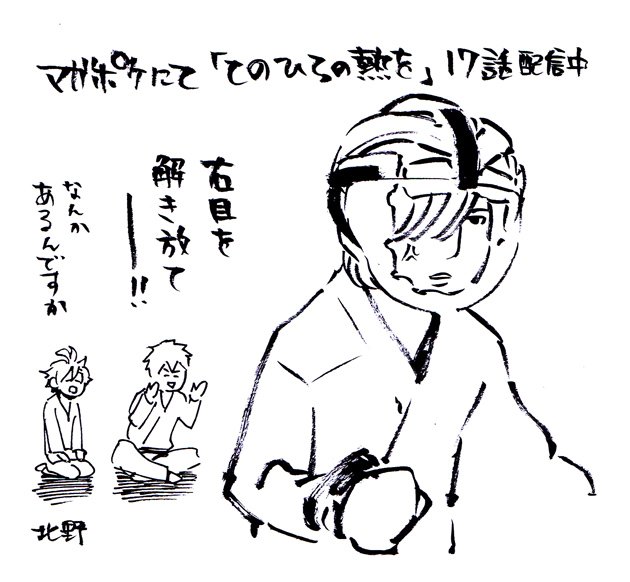 マガポケにて「てのひらの熱を」17話配信中
右目を
解き放て
ーー!!
なんか
あるんですか
北野